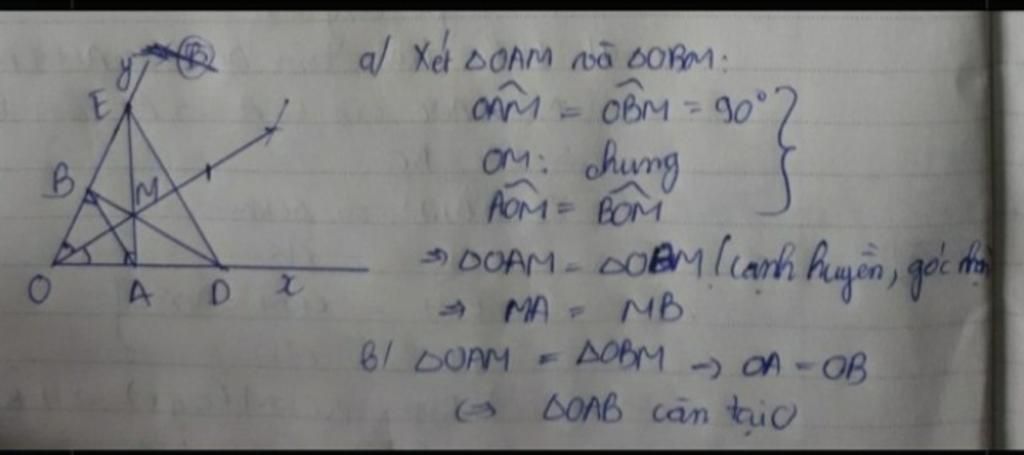 y
E
B
M
O A D x
a/ Xét △OAM và △OBM:
OÂM = OB̂M = 90°
OM: chung
AÔM = BÔM
⇒ △OAM = △OBM (cạnh huyền, góc nhọn
⇒ MA = MB
B/ △OAM = △OBM → OA = OB
⇔ △OAB cân tại O